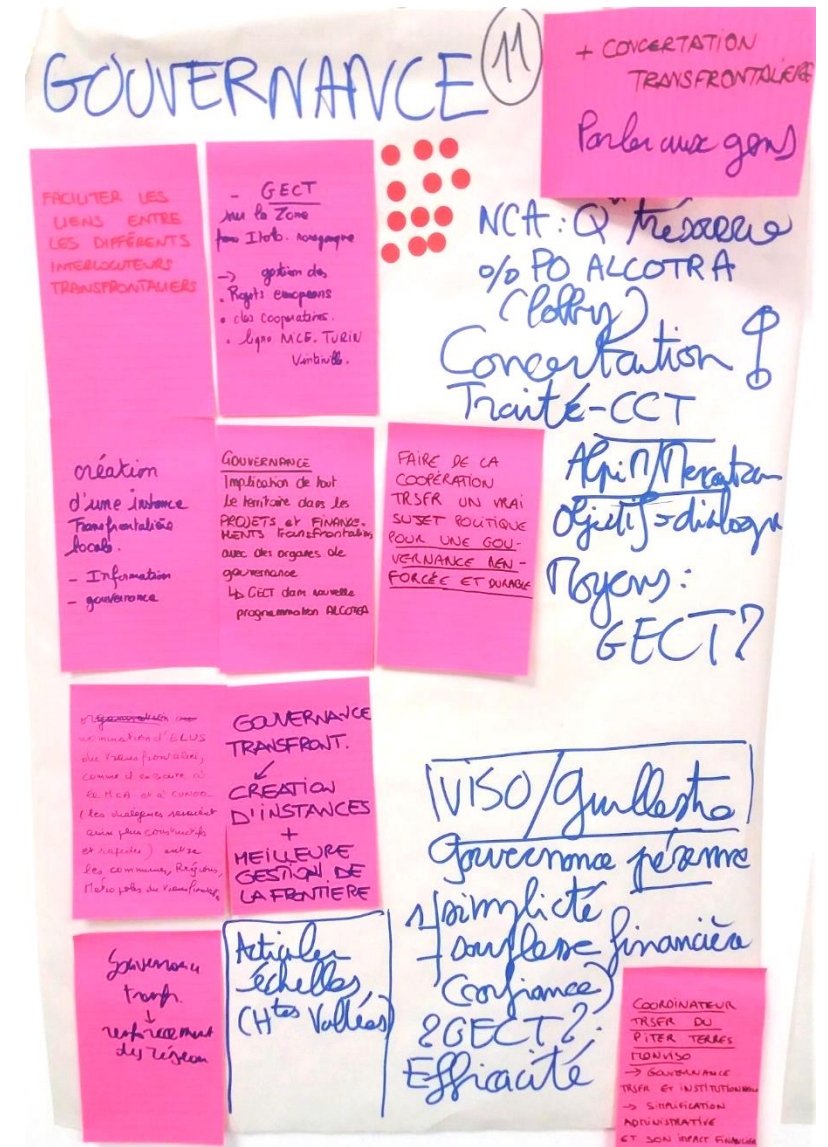 GOUVERNANCE
11
+ CONCERTATION
TRANSFRONTALIERE
Parler aux gens
FACILITER LES
LIENS ENTRE
LES DIFFÉRENTS
INTERLOCUTEURS
TRANSFRONTALIERS
- GECT
sur la Zone
→ gestion des
• Projets européens
• des coopératives.
• ligne NICE. TURIN
Vintimille.
NCA : Q° trésorerie
o/o PO ALCOTRA
(lobby)
Concertation
Traité-CCT
Alpi M/Mercantour
Objectif = dialogue
Moyens :
GECT?
création
d'une instance
Transfrontalière
locale.
- Information
- gouvernance
GOUVERNANCE
Implication de tout
le territoire dans les
PROJETS et FINANCE-
MENTS transfrontaliers
avec des organes de
gouvernance
↳ GECT dans nouvelle
programmation ALCOTRA
FAIRE DE LA
COOPÉRATION
TRSFR UN VRAI
SUJET POLITIQUE
POUR UNE GOU-
VERNANCE REN-
FORCÉE ET DURABLE
nomination d'ELUS
du transfrontalier,
comme il en existe à
la NCA et à CUNEO
(les dialogues seraient
ainsi plus constructifs
et rapides) entre
les communes, Régions,
Métropoles du transfrontalier
GOUVERNANCE
TRANSFRONT.
↙
CREATION
D'INSTANCES
+
MEILLEURE
GESTION DE
LA FRONTIERE
VISO/Guillestre
Gouvernance pérenne
simplicité
- souplesse financière
(confiance)
? GECT ? :
Efficacité
Gouvernance
transfr.
↓
renforcement
du réseau
Articuler
échelles
(Htes Vallées)
COORDINATEUR
TRSFR DU
PITER TERRES
MONVISO
→ GOUVERNANCE
TRSFR ET INSTITUTIONNEL
→ SIMPLIFICATION
ADMINISTRATIVE
ET SON IMPACT FINANCIER